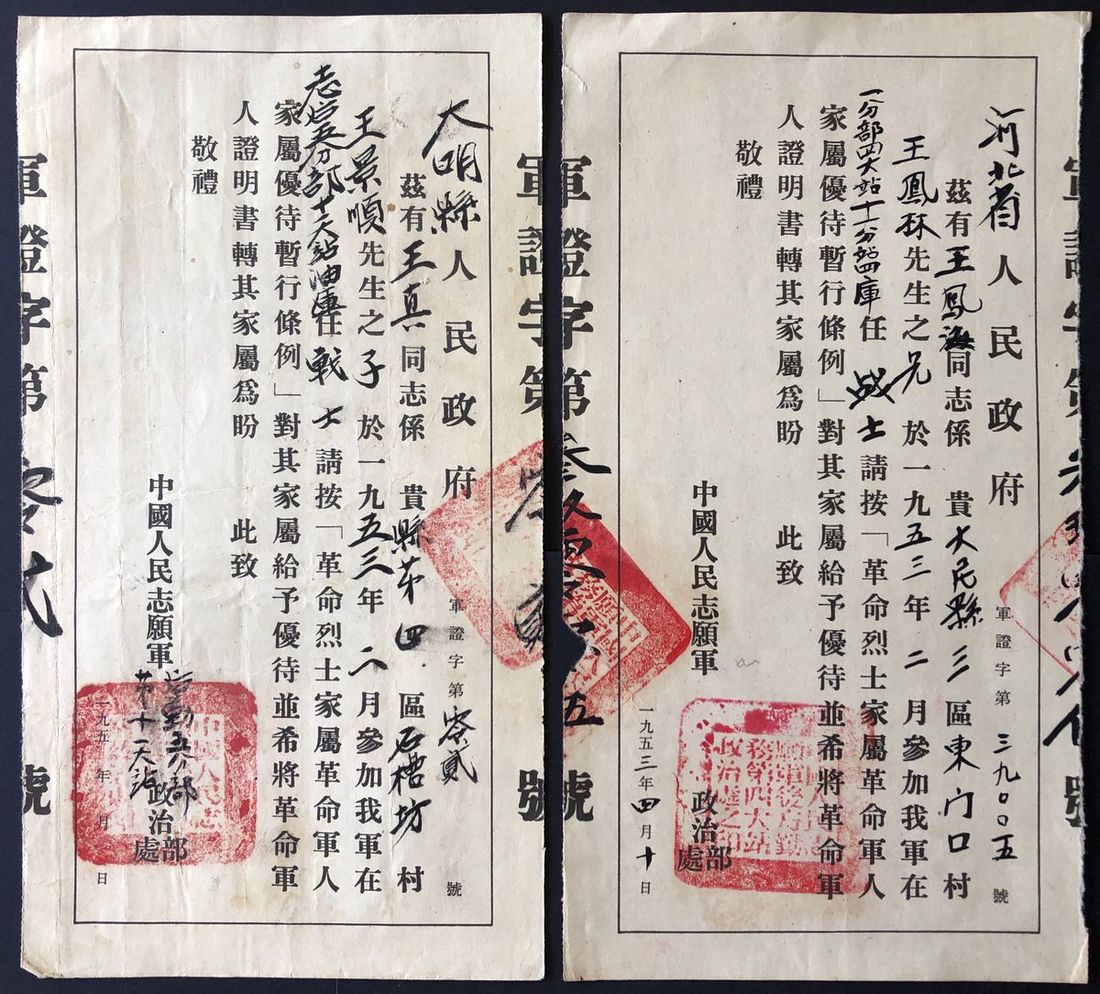 大明縣人民政府
軍證字第零貳號
茲有王真同志係 貴縣苐四區石槽坊村
王景順先生之子於一九五三年二月參加我軍在
志后五分部十一大站油庫任戰士請按「革命烈士家屬革命軍人
家屬優待暫行條例」對其家屬給予優待並希將革命軍
人證明書轉其家屬爲盼 此致
敬禮
中國人民志願軍后勤五分部苐十一大站政治部處
一九五 年 月 日
軍證字第 零貳 號
軍證字第
號
河北省人民政府
軍證字第三九〇〇五號
茲有王鳳海同志係 貴大名縣三區東门口村
王鳳林先生之兄於一九五三年二月參加我軍在
一分部四大站十一分站四庫任战士請按「革命烈士家屬革命軍人
家屬優待暫行條例」對其家屬給予優待並希將革命軍
人證明書轉其家屬爲盼 此致
敬禮
中國人民志願軍政治部處
一九五三年四月十日